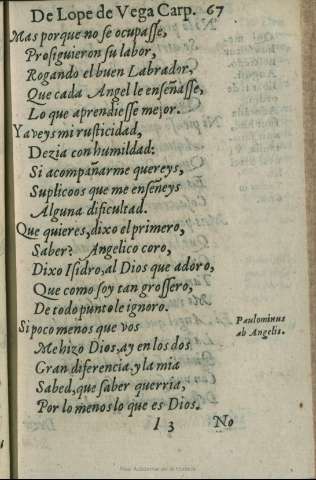 De Lope de Vega Carp. 67
Mas porque no se ocupasse,
Prosiguieron su labor,
Rogando el buen Labrador,
Que cada Angel le enseñasse,
Lo que aprendiesse mejor.
Ya veys mi rusticidad,
Dezia con humildad:
Si acompañarme quereys,
Suplicoos que me enseñeys
Alguna dificultad.
Que quieres, dixo el primero,
Saber? Angelico coro,
Dixo Isidro, al Dios que adoro,
Que como soy tan grossero,
De todo punto le ignoro.
Si poco menos que vos
Paulominus
ab Angelis.
Me hizo Dios, ay en los dos
Gran diferencia, y la mia
Sabed, que saber querria,
Por lo menos lo que es Dios.
I 3 No
Real Academia de la Historia